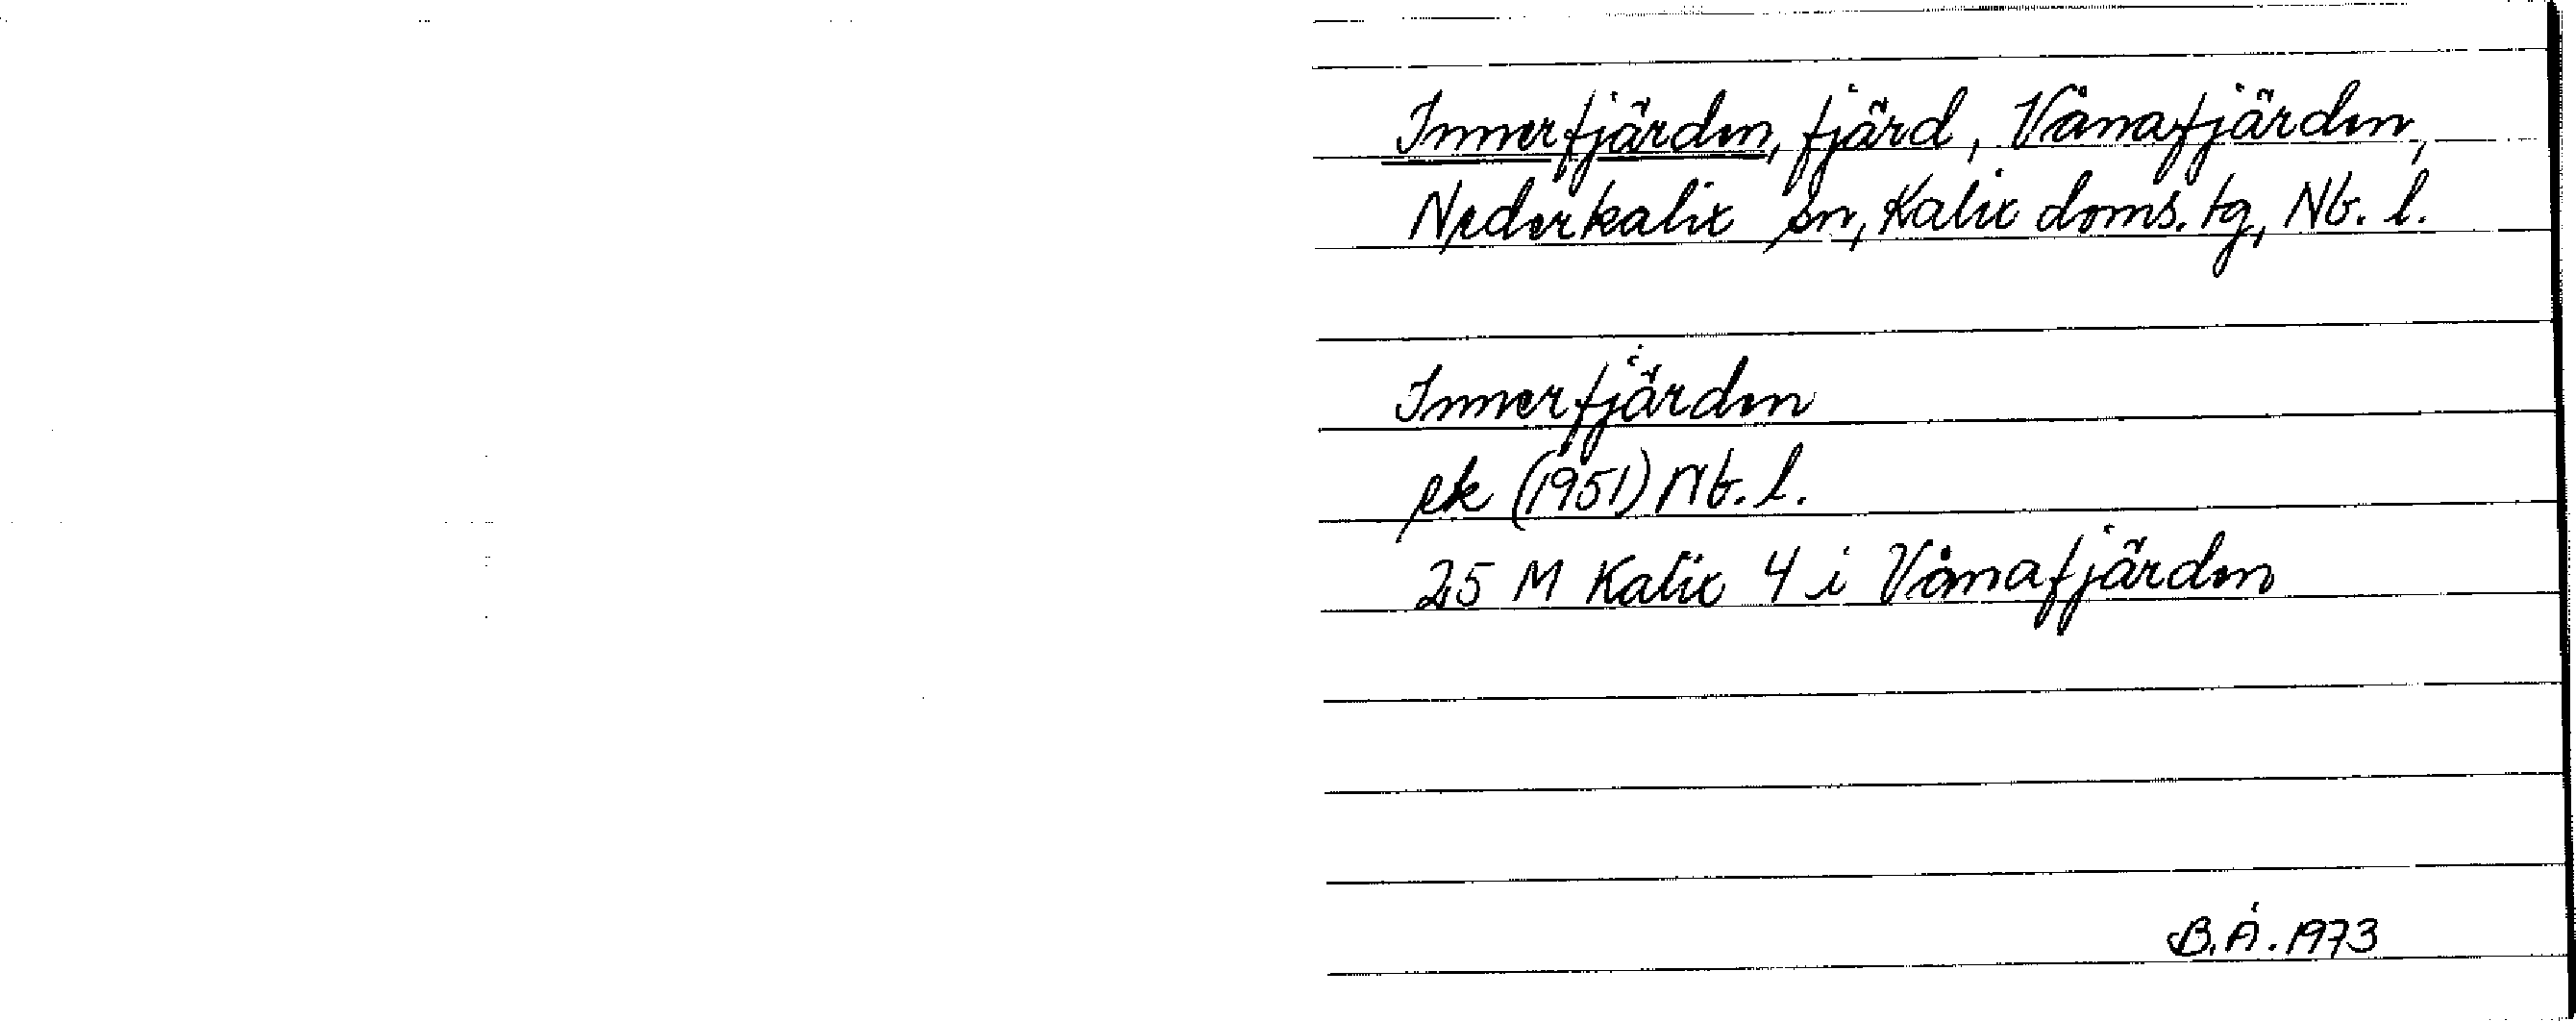 Innerfjärden, fjärd, Vånafjärden,
Nederkalix sn, Kalix doms. tg, Nb. l.
Innerfjärden
ek (1951) Nb. l.
25 M Kalix 4 i Vånafjärden
B.Å. 1973